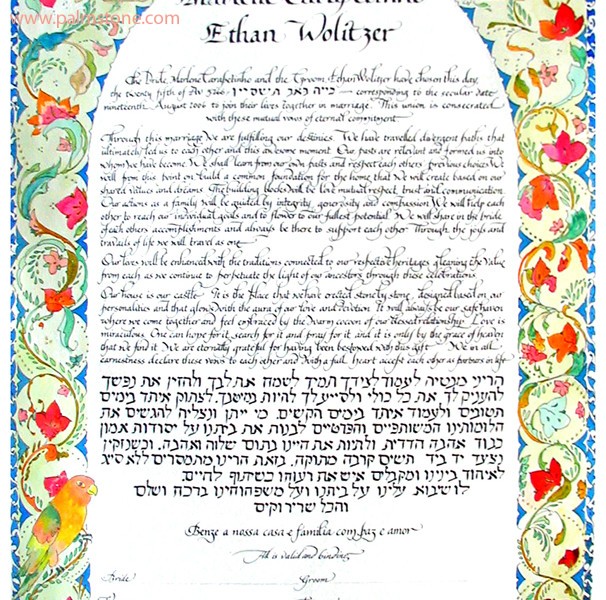 www.palmstone.com
Ethan Wolitzer
The Bride, Marlene Carapetinho and the Groom, Ethan Wolitzer have chosen this day,
the twenty fifth of Av 5766, — corresponding to the secular date
nineteenth August 2006 to join their lives together in marriage. This union is consecrated
with these mutual vows of eternal commitment.
Through this marriage we are fulfilling our destinies. We have travelled divergent paths that
ultimately led us to each other and this awesome moment. Our pasts are relevant and formed us into
whom we have become. We shall learn from our own pasts and respect each others previous choices. We
will from this point on build a common foundation for the home that we will create based on our
shared values and dreams. The building blocks will be love, mutual respect, trust and communication.
Our actions as a family will be guided by integrity, generosity and compassion. We will help each
other to reach our individual goals and to flower to our fullest potential. We will share in the pride
of each others accomplishments and always be there to support each other. Through the joys and
travails of life we will travel as one.
Our lives will be enhanced with the traditions connected to our respective heritages gleaning the value
from each as we continue to perpetuate the light of our ancestors through these celebrations.
Our house is our castle. It is the place that we have erected stone by stone, designed based on our
personalities and that glows with the aura of our love and devotion. It will always be our safe haven
where we come together and feel embraced by the warm cocoon of our blessed relationship. Love is
miraculous. One can hope for it, search for it and pray for it and it is only by the grace of heaven
that we find it. We are eternally grateful for having been bestowed with this gift. We in all
earnestness declare these vows to each other and with a full heart accept each other as partners in life.
הריני מבטיח לעמוד לצידך תמיד לשמח את לבך ולהזין את נפשך
להעניק לך את כל כולי ולסייע לך להיות נמשך. לצחוק איתך בימים
הטובים ולעמוד איתך בימים הקשים. מי ייתן ונצליח להגשים את
חלומותינו המשותפים והפרטיים לבנות את ביתנו על יסודות אמון
כבוד אהבה הדדית ולחיות את חיינו בתום שלוה ואהבה. וכשנזקין
נצעד יד ביד תשים קרבה מתוקה. בזאת הרינו מתמסרים ללא סיג
לאיחוד בינינו ומקבלים איש את רעהו כשתוף לחיים.
לו שיבוא עלינו על ביתנו ועל משפחותינו ברכה ושלום
והכל שריר וקים
Benze a nossa casa e familia com paz e amor
All is valid and binding
Bride Groom